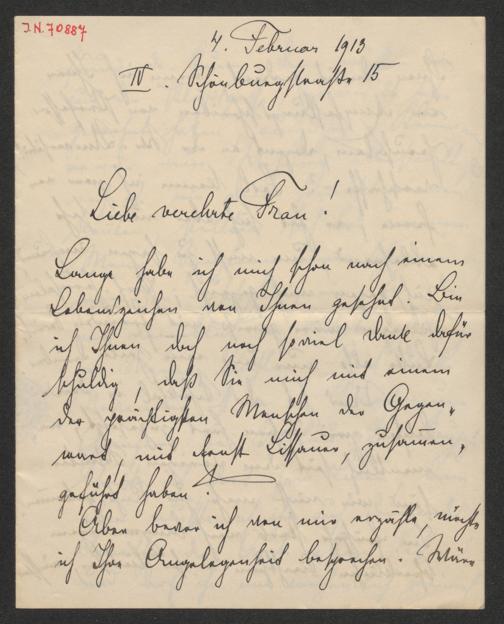 J.N. 70887
4. Februar 1913
IV. Schönburgstraße 15
Liebe verehrte Frau!
Lange habe ich mich schon nach einem
Lebenszeichen von Ihnen gesehnt. Bin
ich Ihnen doch noch soviel Dank dafür
schuldig, daß Sie mich mit einem
der prächtigsten Menschen der Gegen-
wart, mit Ernst Lissauer, zusammen-
geführt haben!
Aber bevor ich von mir erzähle, möchte
ich Ihre Angelegenheit besprechen. Wäre